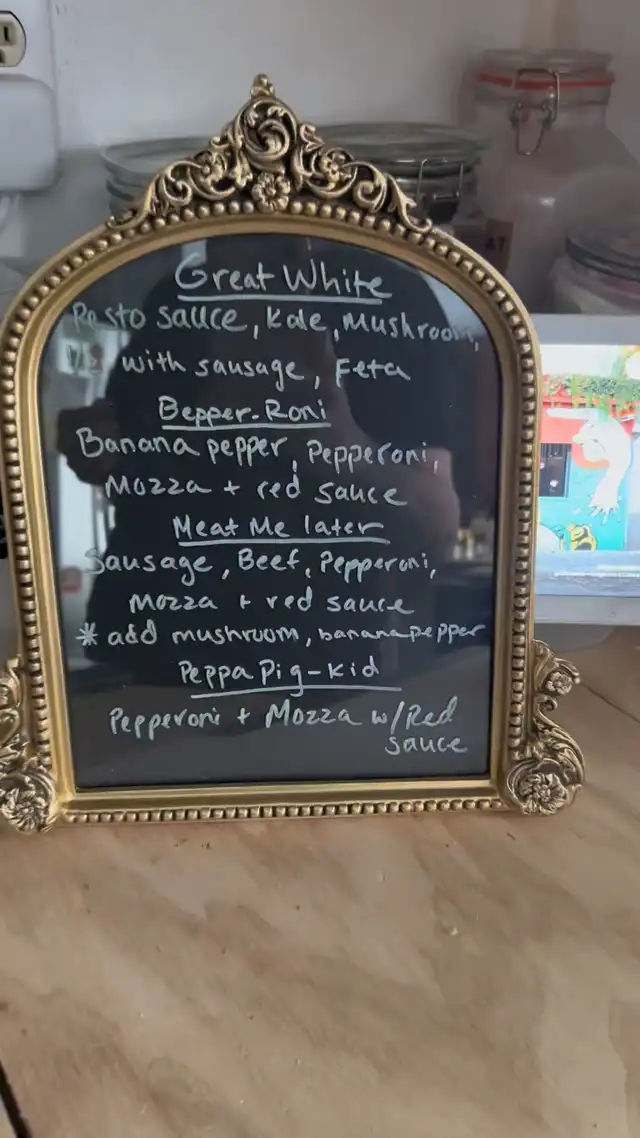 Great White
Pesto sauce, Kale, Mushroom,
with sausage, Feta
Bepper-Roni
Banana pepper, Pepperoni,
Mozza + red sauce
Meat Me later
Sausage, Beef, Pepperoni,
Mozza + red sauce
* add mushroom, banana pepper
Peppa Pig-Kid
Pepperoni + Mozza w/Red
sauce